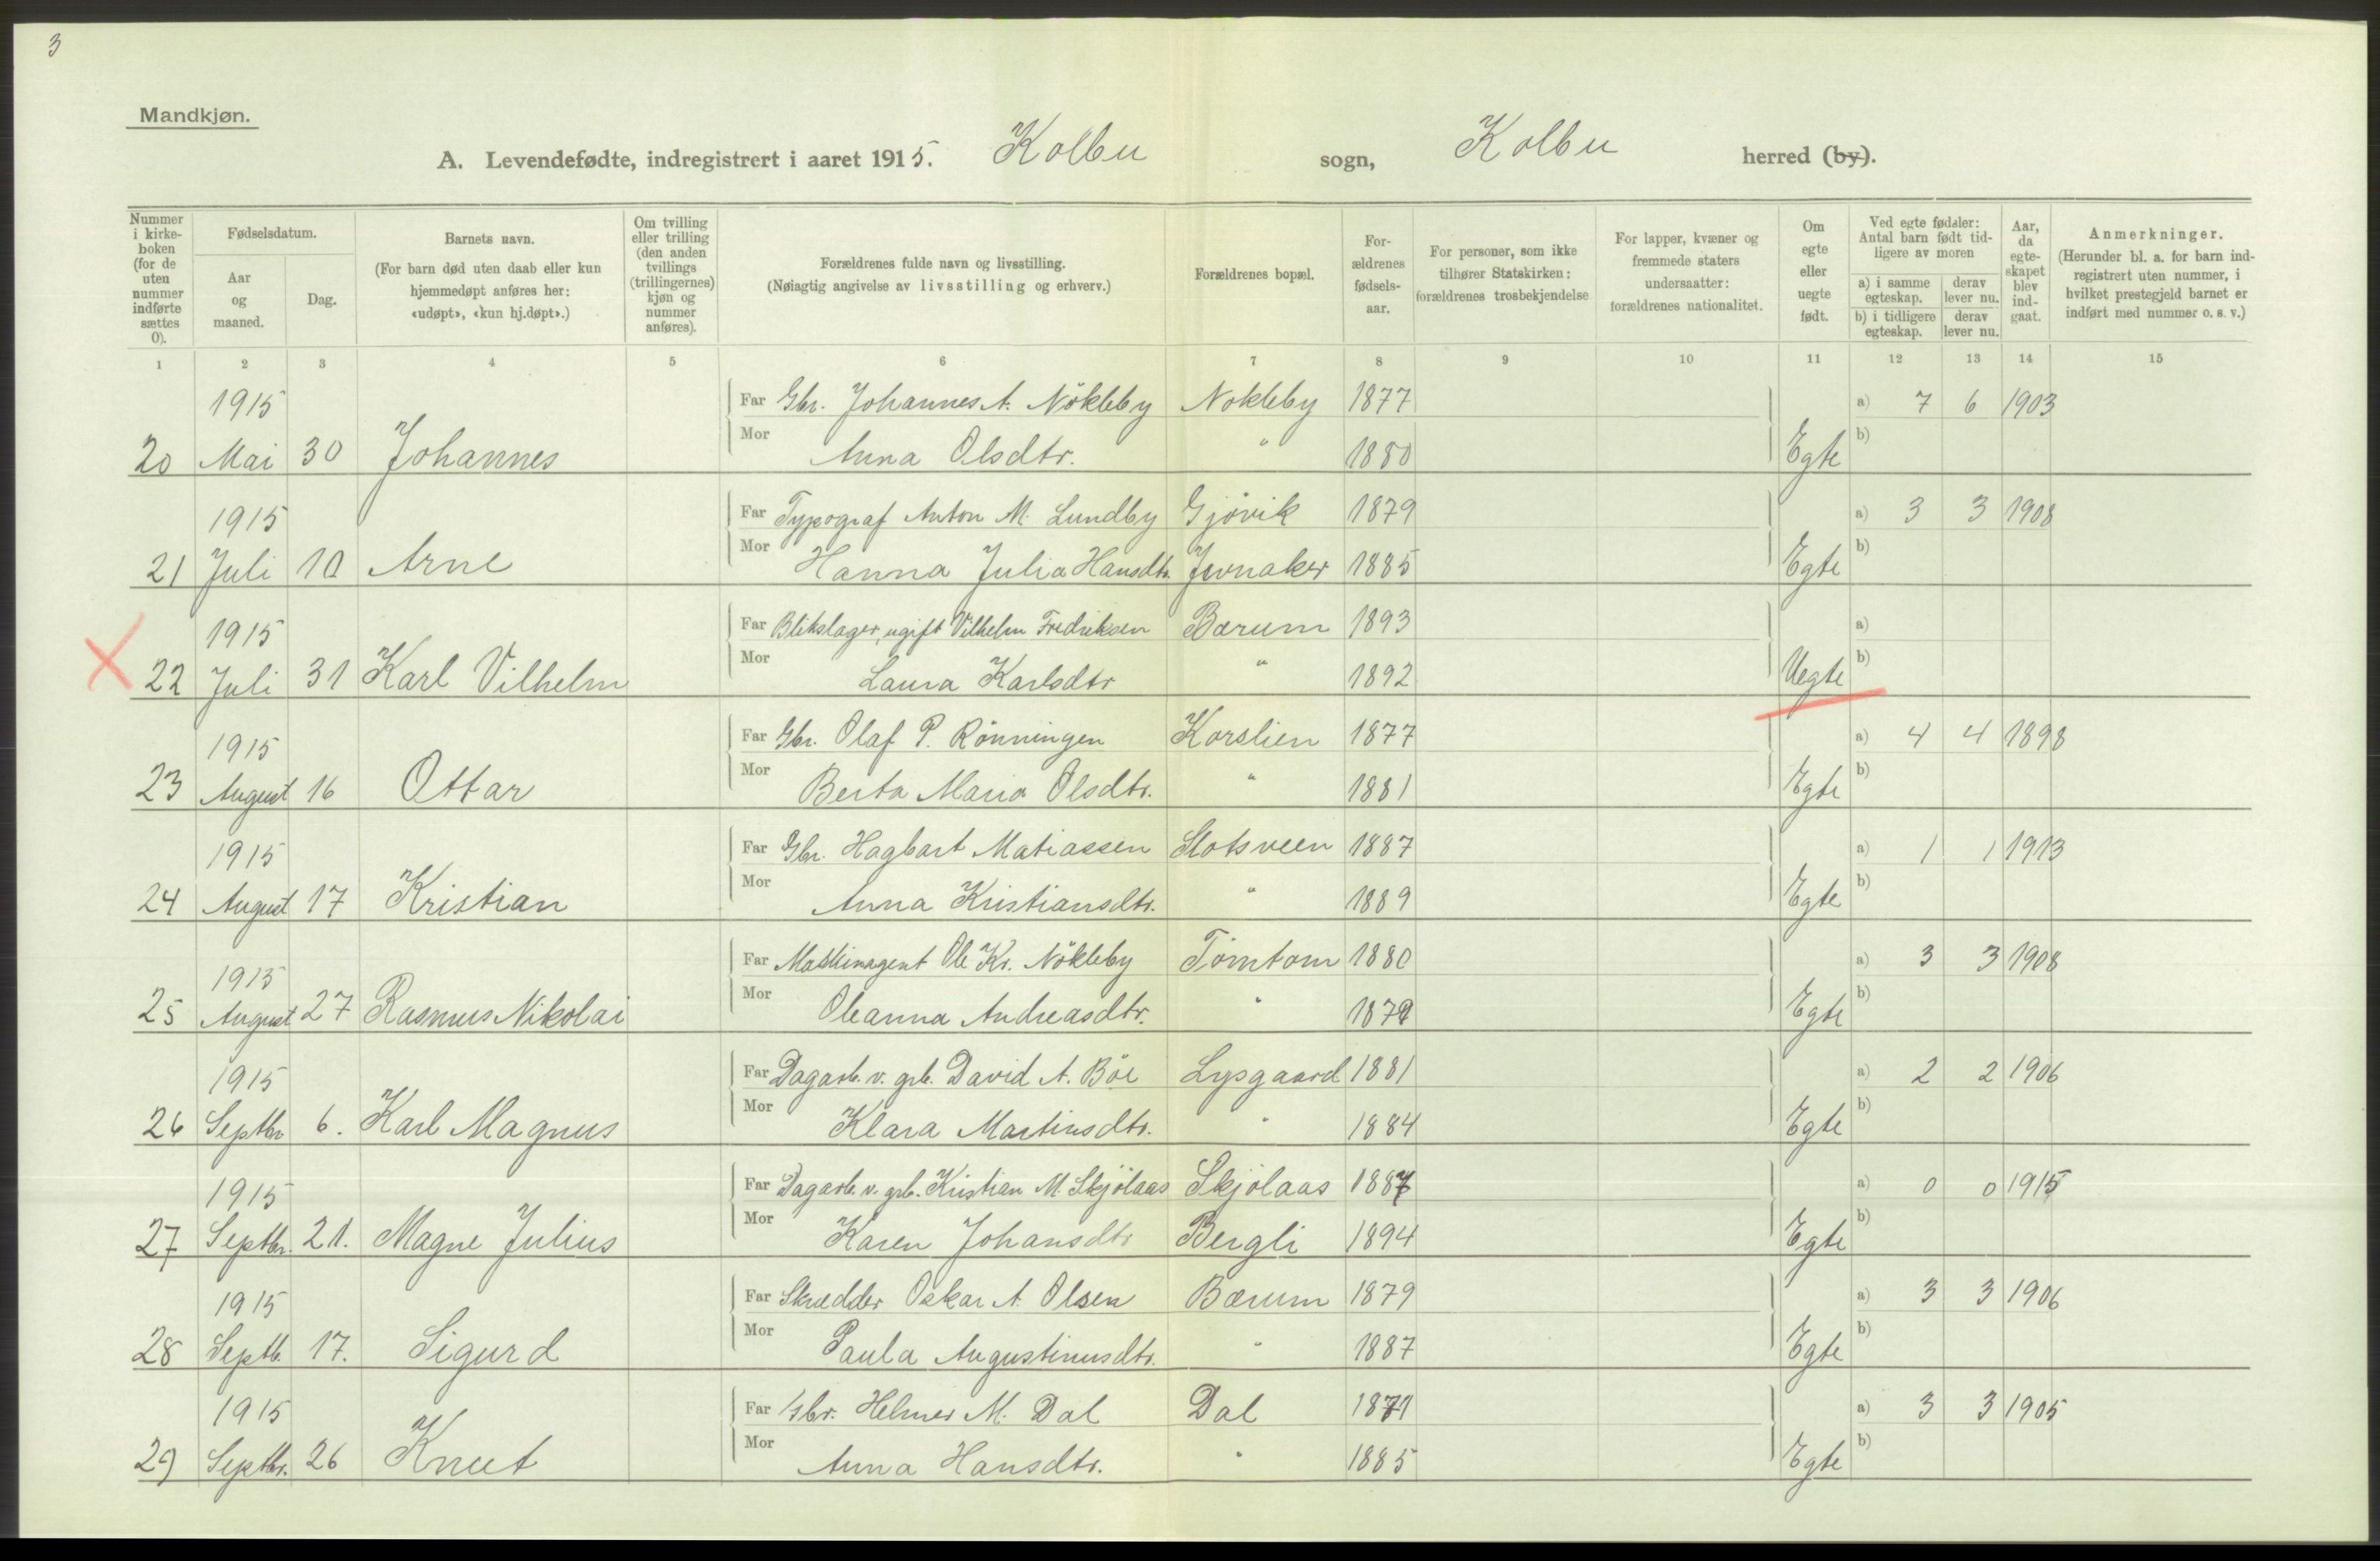 3
Mandkjøn.
A. Levendefødte, indregistrert i aaret 1915. Kolbu sogn, Kolbu herred (by).
Nummer i kirkeboken (for de uten nummer indførte sættes 0).
Fødselsdatum.
Aar og maaned.
Dag.
Barnets navn.
(For barn død uten daab eller kun hjemmedøpt anføres her: «udøpt», «kun hj.døpt».)
Om tvilling eller trilling (den anden tvillings (trillingernes) kjøn og nummer anføres).
Forældrenes fulde navn og livsstilling.
(Nøiagtig angivelse av livsstilling og erhverv.)
Forældrenes bopæl.
Forældrenes fødselsaar.
For personer, som ikke tilhører Statskirken: forældrenes trosbekjendelse
For lapper, kvæner og fremmede staters undersaatter: forældrenes nationalitet.
Om egte eller uegte født.
Ved egte fødsler: Antal barn født tidligere av moren
a) i samme egteskap. derav lever nu.
b) i tidligere egteskap. derav lever nu.
Aar, da egteskapet blev indgaat.
Anmerkninger.
(Herunder bl. a. for barn indregistrert uten nummer, i hvilket prestegjeld barnet er indført med nummer o. s. v.)
1 2 3 4 5 6 7 8 9 10 11 12 13 14 15
1915 Far Gbr. Johannes A. Nökleby Nokleby 1877 a) 7 6 1903
20 Mai 30 Johannes Mor Anna Olsdtr. " 1880 Egte b)
1915 Far Typograf Anton M. Lundby Gjövik 1879 a) 3 3 1908
21 Juli 10 Arne Mor Hanna Julia Hansdtr. Jevnaker 1885 Egte b)
1915 Far Blikslager, ugift Vilhelm Fredriksen Bærum 1893 a)
22 Juli 31 Karl Vilhelm Mor Laura Karlsdtr " 1892 Uegte b)
1915 Far Gbr. Olaf P. Rönningen Korslien 1877 a) 4 4 1898
23 August 16 Ottar Mor Berta Maria Olsdtr. " 1881 Egte b)
1915 Far Gbr. Hagbart Matiassen Slotsveen 1887 a) 1 1 1913
24 August 17 Kristian Mor Anna Kristiansdtr. " 1889 Egte b)
1915 Far Maskinagent Ole Kr. Nökleby Tömtom 1880 a) 3 3 1908
25 August 27 Rasmus Nikolai Mor Oleanna Andreasdtr. " Egte b)
1915 Far Dagarb. v. grb. David A. Böe Lysgaard 1881 a) 2 2 1906
26 Septbr 6. Karl Magnus Mor Klara Martinsdtr. " 1884 Egte b)
1915 Far Dagarb. v. grb. Kristian M. Skjölaas Skjölaas a) 0 0 1915
27 Septbr. 21. Magne Julius Mor Karen Johansdtr Bergli 1894 Egte b)
1915 Far Skrædder Oskar A. Olsen Bærum 1879 a) 3 3 1906
28 Septb. 17. Sigurd Mor Paula Augustinusdtr. " 1887 Egte b)
1915 Far Gbr. Helmer M. Dal Dal 1871 a) 3 3 1905
29 Septbr. 26 Knut Mor Anna Hansdtr. " 1885 Egte b)